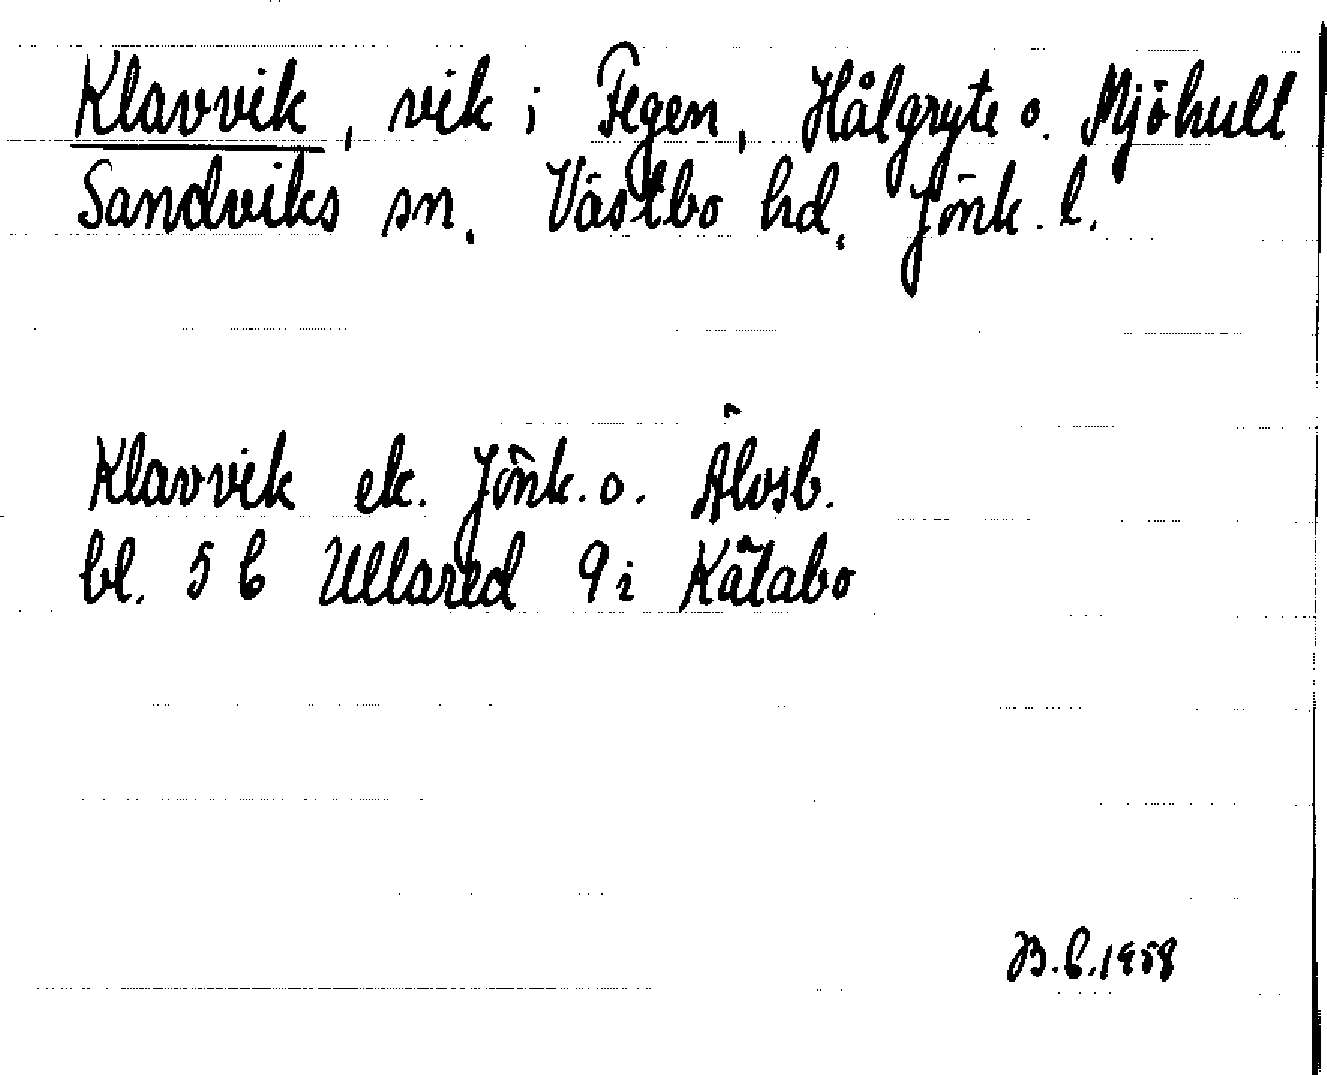 Klavvik, vik i Fegen, Hålgryte o. Mjöhult
Sandviks sn. Västbo hd. Jönk. l.
Klavvik ek. Jönk. o. Älvsb.
bl. 5 b Ullared 9 i Kätabo
B.E. 1958